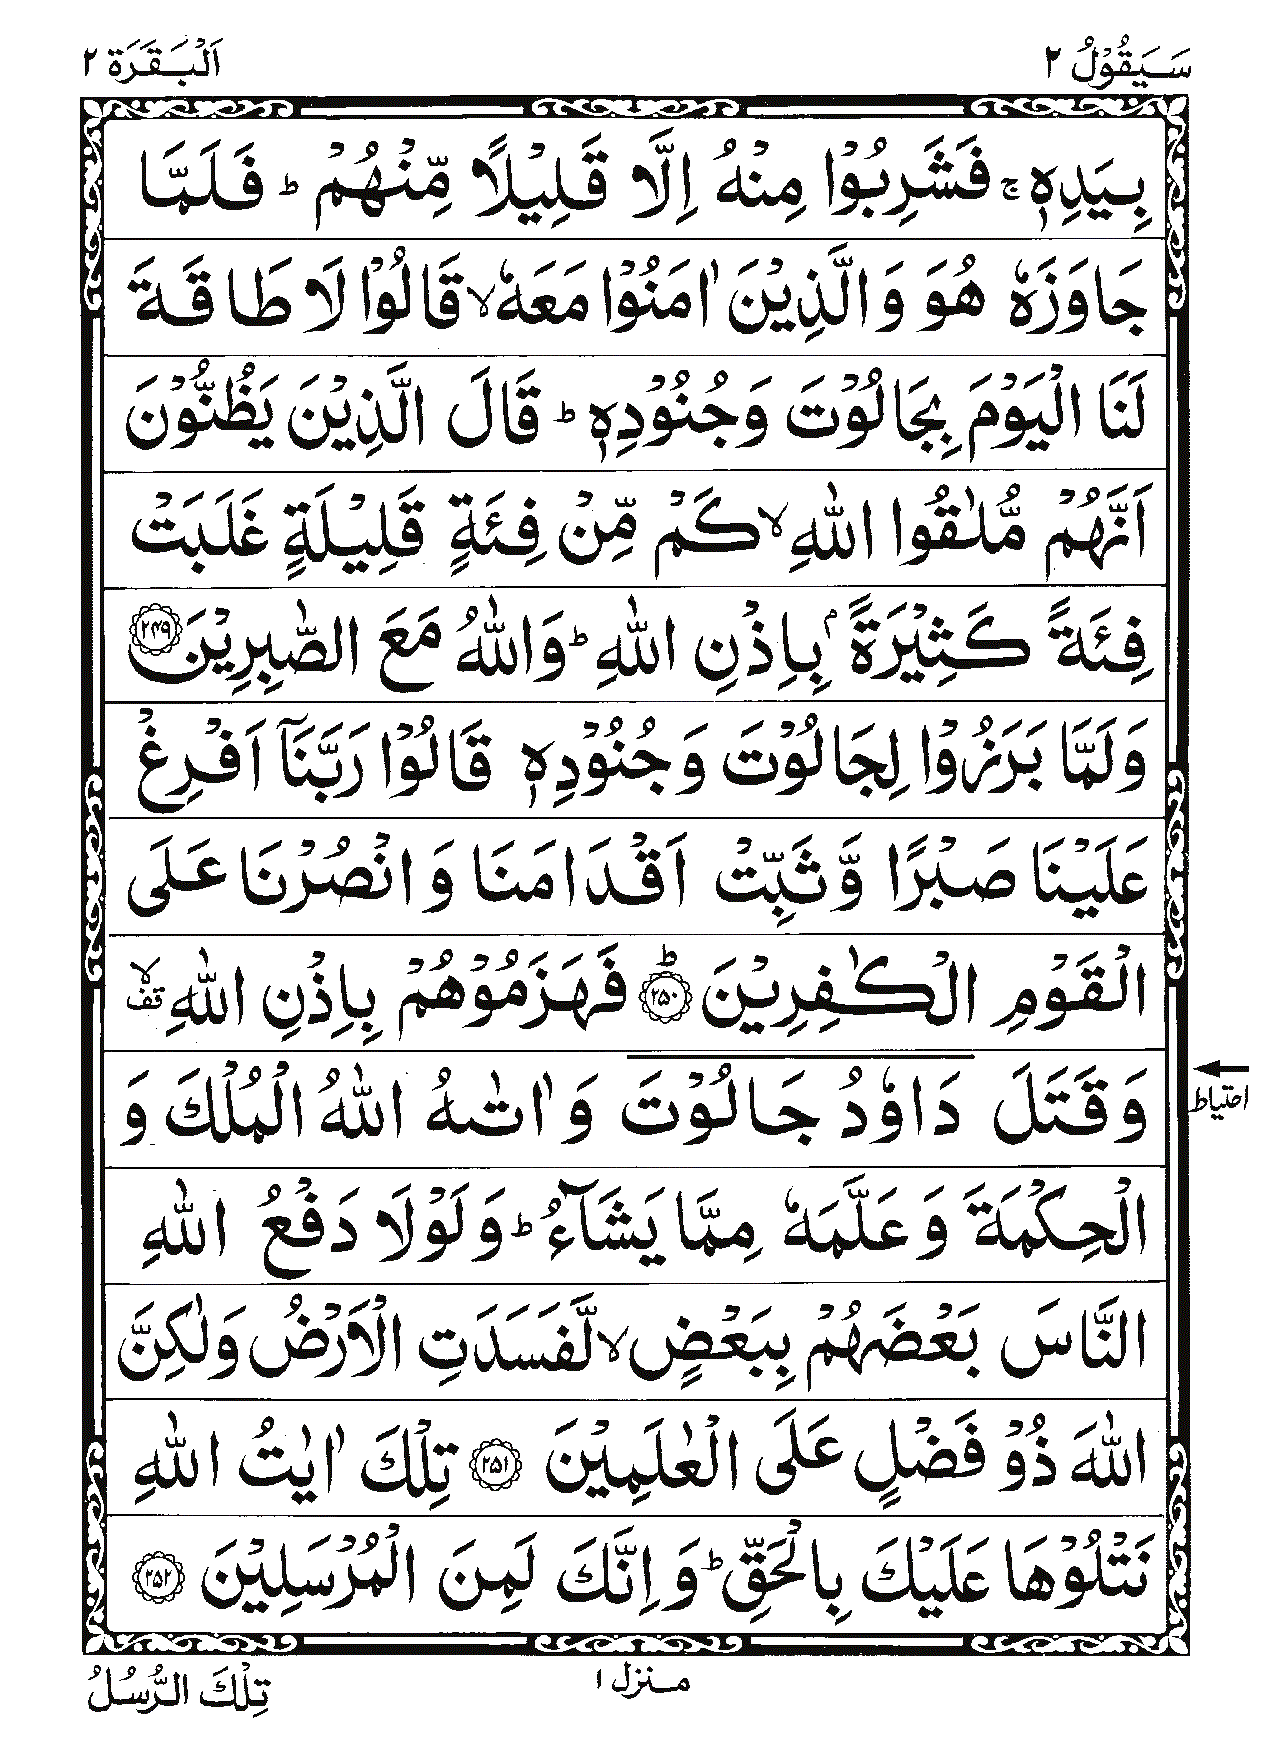 سَيَقُوْلُ ٢
اَلْبَقَرَة ٢
بِيَدِهٖ ۚ فَشَرِبُوْا مِنْهُ اِلَّا قَلِيْلًا مِّنْهُمْ ؕ فَلَمَّا
جَاوَزَهٗ هُوَ وَالَّذِيْنَ اٰمَنُوْا مَعَهٗ ۙ قَالُوْا لَا طَاقَةَ
لَنَا الْيَوْمَ بِجَالُوْتَ وَجُنُوْدِهٖ ؕ قَالَ الَّذِيْنَ يَظُنُّوْنَ
اَنَّهُمْ مُّلٰقُوا اللّٰهِ ۙ كَمْ مِّنْ فِئَةٍ قَلِيْلَةٍ غَلَبَتْ
فِئَةً كَثِيْرَةًۢ بِاِذْنِ اللّٰهِ ؕ وَاللّٰهُ مَعَ الصّٰبِرِيْنَ ﴿٢٤٩﴾
وَلَمَّا بَرَزُوْا لِجَالُوْتَ وَجُنُوْدِهٖ قَالُوْا رَبَّنَاۤ اَفْرِغْ
عَلَيْنَا صَبْرًا وَّثَبِّتْ اَقْدَامَنَا وَانْصُرْنَا عَلَى
الْقَوْمِ الْكٰفِرِيْنَ ﴿٢٥٠﴾ؕ فَهَزَمُوْهُمْ بِاِذْنِ اللّٰهِ ۙ قف
وَقَتَلَ دَاوٗدُ جَالُوْتَ وَاٰتٰىهُ اللّٰهُ الْمُلْكَ وَ
احتیاط
الْحِكْمَةَ وَعَلَّمَهٗ مِمَّا يَشَآءُ ؕ وَلَوْلَا دَفْعُ اللّٰهِ
النَّاسَ بَعْضَهُمْ بِبَعْضٍ ۙ لَّفَسَدَتِ الْاَرْضُ وَلٰكِنَّ
اللّٰهَ ذُوْ فَضْلٍ عَلَى الْعٰلَمِيْنَ ﴿٢٥١﴾ تِلْكَ اٰيٰتُ اللّٰهِ
نَتْلُوْهَا عَلَيْكَ بِالْحَقِّ ؕ وَاِنَّكَ لَمِنَ الْمُرْسَلِيْنَ ﴿٢٥٢﴾
منزل ١
تِلْكَ الرُّسُلُ